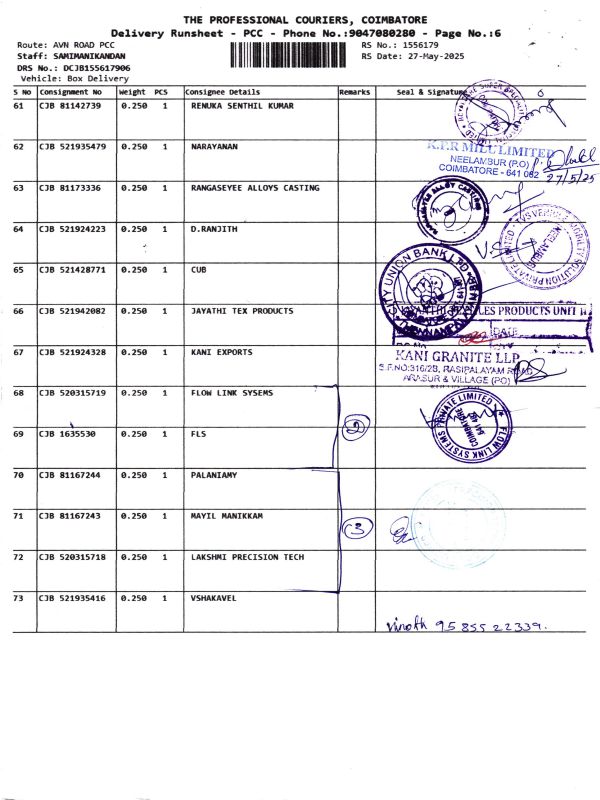 THE PROFESSIONAL COURIERS, COIMBATORE
Delivery Runsheet - PCC - Phone No.:9047080280 - Page No.:6
Route: AVN ROAD PCC
RS No.: 1556179
Staff: SAMIMANIKANDAN
RS Date: 27-May-2025
DRS No.: DCJB155617906
Vehicle: Box Delivery
S No Consignment No Weight PCS Consignee Details Remarks Seal & Signature
61 CJB 81142739 0.250 1 RENUKA SENTHIL KUMAR
62 CJB 521935479 0.250 1 NARAYANAN
K.P.R MILL LIMITED
NEELAMBUR (P.O)
COIMBATORE - 641 062
27/5/25
63 CJB 81173336 0.250 1 RANGASEYEE ALLOYS CASTING
64 CJB 521924223 0.250 1 D.RANJITH
TVS VEHICLE MOBILITY SOLUTION PRIVATE LIMITED
NEELAMBUR
65 CJB 521428771 0.250 1 CUB
CITY UNION BANK LTD
66 CJB 521942082 0.250 1 JAYATHI TEX PRODUCTS
PRODUCTS UNIT II
DATE
67 CJB 521924328 0.250 1 KANI EXPORTS
KANI GRANITE LLP
S.F.NO:316/2B, RASIPALAYAM ROAD
ARASUR & VILLAGE (PO)
68 CJB 520315719 0.250 1 FLOW LINK SYSEMS
FLOW LINK SYSTEMS PRIVATE LIMITED
COIMBATORE
2
69 CJB 1635530 0.250 1 FLS
70 CJB 81167244 0.250 1 PALANIAMY
71 CJB 81167243 0.250 1 MAYIL MANIKKAM
3
72 CJB 520315718 0.250 1 LAKSHMI PRECISION TECH
73 CJB 521935416 0.250 1 VSHAKAVEL
Vinoth 95855 22339.